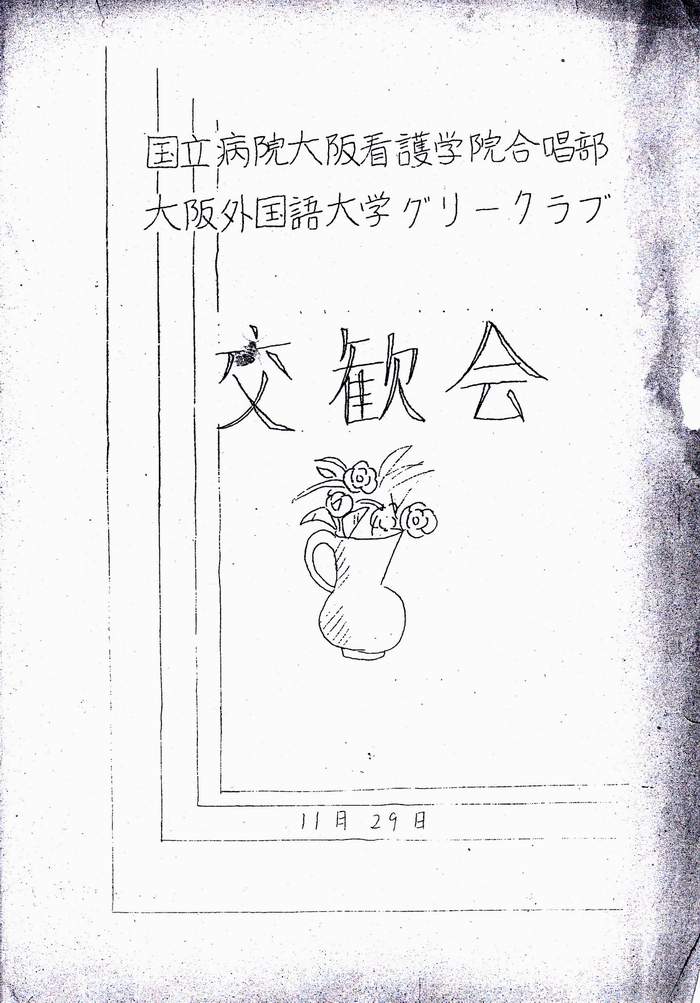 国立病院大阪看護学院合唱部
大阪外国語大学グリークラブ
交歓会
11月29日